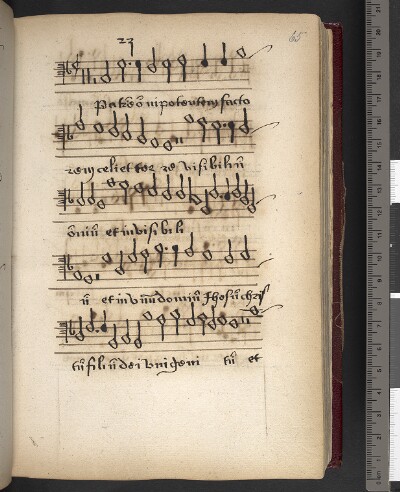 23
65
Patrē ōnipotentem facto
rem celi et ter re visibiliū
ōniū et invisibili
ū et in vnū dominū Jhesū chris
tū filiū dei vnigeni tū et